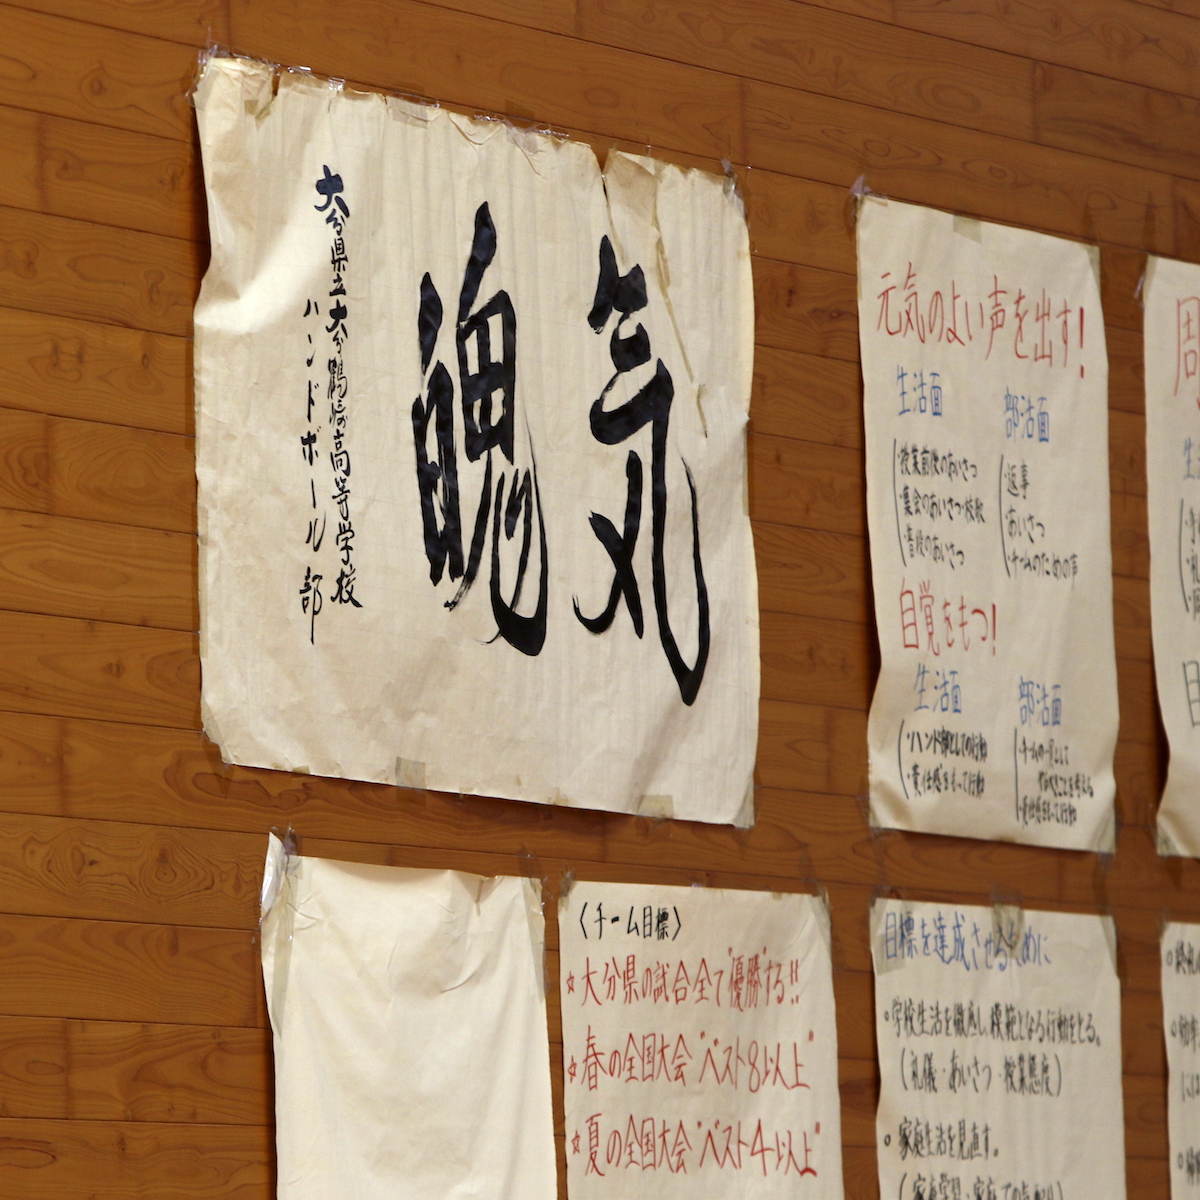 気魄
大分県立大分鶴崎高等学校
ハンドボール部
元気のよい声を出す!
生活面
・授業前後のあいさつ
・集会のあいさつ・校歌
・普段のあいさつ
部活面
・返事
・あいさつ
・チームのための声
自覚をもつ!
生活面
・ハンド部としての行動
・責任感をもって行動
部活面
・チームの一員として
やるべきことを考える
・責任感をもって行動
周
生
〈チーム目標〉
☆大分県の試合全て"優勝"する!!
☆春の全国大会"ベスト8以上"
☆夏の全国大会"ベスト4以上"
目標を達成させるために
○学校生活を徹底し、模範となる行動をとる。
(礼儀・あいさつ・授業態度)
○家庭生活を見直す。